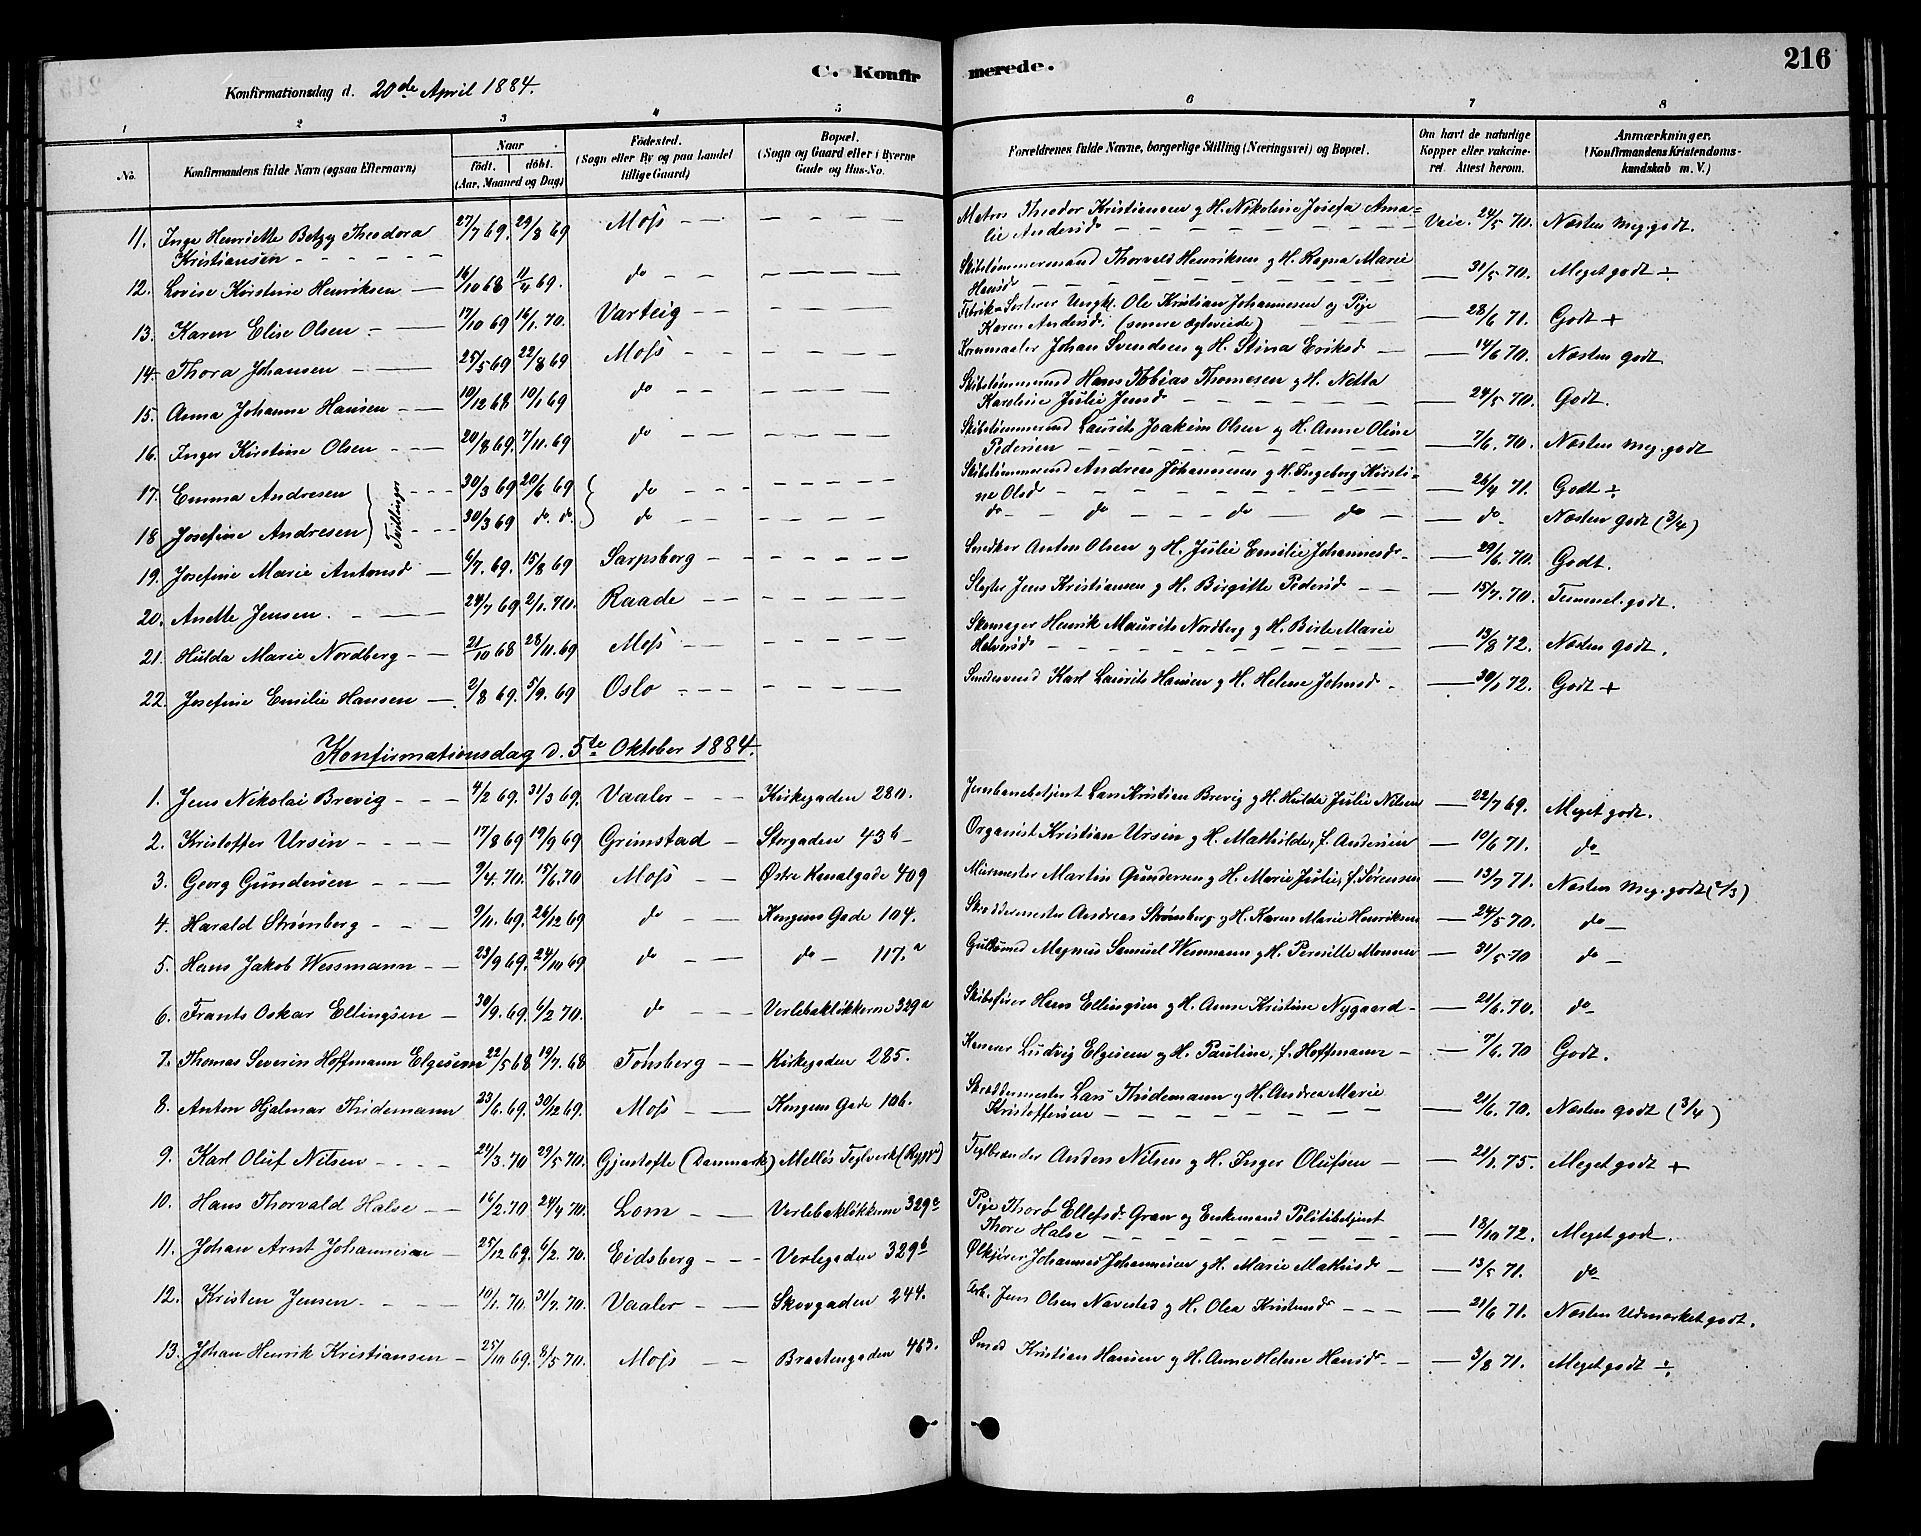 216
C. Konfirmerede.
Konfirmationsdag d. 20de April 1884.
1 2 3 4 5 6 7 8
No. Konfirmandens fulde Navn (ogsaa Efternavn) Naar födt. döbt. (Aar, Maaned og Dag) Födested. (Sogn eller By og paa Landet tillige Gaard) Bopæl. (Sogn og Gaard eller i Byerne Gade og Hus-No. Forældrenes fulde Navne, borgerlige Stilling (Næringsvei) og Bopæl. Om havt de naturlige Kopper eller vakcineret. Attest herom. Anmærkninger. (Konfirmandens Kristendomskundskab m. V.)
11. Inga Henriette Betzy Theodora Kristiansen 27/7 69. 29/8 69 Moss Matros Theodor Kristiansen g H. Nikoline Josefa Amalie Andersd Vaic. 24/5 70. Næsten meg. godt.
12. Lovise Kirstine Henriksen 16/10 68 11/4 69. do Skibstømmermand Thorvald Henriksen g H. Ragna Marie Hansd 31/5 70. Meget godt ÷
13. Karen Elise Olsen 17/10 69 16/1 70. Varteig Ungk. Ole Kristian Johannesen og Pige Karen Andersd. (senere ægteviede) 28/6 71. Godt +
14. Thora Johansen 25/5 69 22/8 69 Moss Kornmaaler Johan Svendsen g H. Stina Eriksd 14/6 70. Næsten godt
15. Anna Johanne Hansen 19/12 68 10/1 69 do Skibstømmermd Hans Tobias Thomesen g H. Netta Karoline Julie Jensd 24/5 70. Godt.
16. Inger Kirstine Olsen 20/8 69. 7/11. 69 do Skibstømmermd Laurits Joakim Olsen g H. Anne Oline Pedersen 7/6. 70. Næsten meg. godt
17. Emma Andresen Tvillinger 30/3 69 20/6 69 do Skibstømmermd Andreas Johannesen g H. Ingeborg Kirstine Olsd 26/4 71. Godt ÷
18 Josefine Andresen 30/3 69 do. do. do do do do do do Næsten godt (3/4)
19. Josefine Marie Antonsd 6/7. 69. 15/8 69 Sarpsborg Snedker Anton Olsen g H. Julie Emilie Johannesd 29/6 70. Godt.
20. Anette Jensen 24/7 69 2/1. 70. Raade Slagter Jens Kristiansen g H. Birgitte Pedersd 15/7. 70. Temmel. godt.
21. Hulda Marie Nordberg 21/10 68 28/11 69 Moss Skomager Henrik Maurits Nordberg g H. Birte Marie Halvorsd 13/8 72. Næsten godt.
22. Josefine Emilie Hansen 2/8 69. 5/9. 69 Oslo Smedesvend Karl Laurits Hansen g H. Helene Johnsd 30/1 72. Godt +
Konfirmationsdag d. 5te Oktober 1884.
1. Jens Nikolai Brevig 4/2 69. 31/3 69. Vaaler Kirkegaden 280. Jernbanebetjent Lars Kristian Brevig g H. Hulda Julie Nilsen 22/7 69. Meget godt.
2. Kristoffer Ursin 17/8 69 19/9 69 Grimstad Storgaden 43 b Organist Kristian Ursin g H. Mathilde, f. Andersen 10/6 71. do
3. Georg Gundersen 9/4. 70. 15/6. 70 Moss Østre Kanalgade 409 Murmester Martin Gundersen g H. Marie Julie, f. Sørensen 13/7 71. Næsten meg. godt (2/3)
4. Harald Strømberg 9/11. 69. 26/12 69 do Kongens Gade 104. Skræddermester Andreas Strømberg g H. Karen Marie Henriksen 24/5 70. do
5. Hans Jakob Wessmann 23/9 69. 24/10 69 do do 117. a Guldsmed Magnus Samuel Wessmann g H. Pernille Monsen 31/5 70 do
6. Frants Oskar Ellingsen 30/9. 69. 6/2 70. do Verlebakløkkerne 329 a Skibsfører Hans Ellingsen g H. Anne Kristine Nygaard 21/6. 70. do
7. Thomas Severin Hoffmann Elgesem 22/5 68 19/7. 68 Tønsberg Kirkegaden 285. Ludvig Elgesem g H. Pauline, f. Hoffmann 7/6. 70 Godt.
8. Anton Hjalmar Thidemann 23/6. 69. 30/12 69. Moss Kongens Gade 106. Skræddermester Lars Thidemann g H. Andrea Marie Kristoffersen 21/6. 70. Næsten godt (3/4)
9. Karl Oluf Nilsen 21/3. 70 29/5 70. Gjentofte (Danmark) Melløs Teglverk (Rygge) Teglbrænder Anders Nilsen g H. Inger Olufsen 21/1. 75. Meget godt +
10. Hans Thorvald Halse 16/2. 70 24/4 70. Lom Verlebakløkkerne 329 a Pige Thorø Ellefsd Gran og Enkemand Politibetjent Thore Halse 18/10 72. Meget godt.
11. Johan Arnt Johannesen 25/12 69. 6/2. 70. Eidsberg Verlegaden 329 b Ølkjører Johannes Johannesen g H. Marie Mathisd 13/5 71. do
12. Kristen Jensen 19/1. 70. 31/7. 70. Vaaler Skovgaden 244. Arb. Jens Olsen Navestad g H. Olea Kristensd 21/6 71. Næsten Udmærket godt.
13. Johan Henrik Kristiansen 25/10 69. 8/5 70. Moss Braatengaden 463. Smed Kristian Hansen g H. Anne Helene Hansd 3/8 71. Meget godt ÷